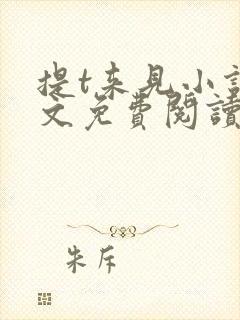 提t来见小
文免費閱讀
朱斥